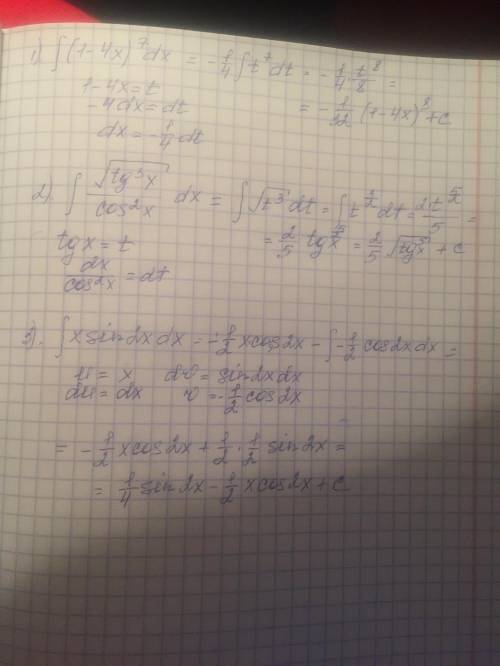 1) ∫(1-4x)^7 dx = -1/4 ∫t^7 dt = -1/4 t^8/8 =
1-4x=t
-4dx=dt
= -1/32 (1-4x)^8 + C
dx=-1/4 dt
2) ∫ √(tg^3 x)/cos^2 x dx = ∫√(t^3) dt = ∫t^(3/2) dt = 2t^(5/2)/5 =
tgx=t
= 2/5 tg^(5/2) x = 2/5 √(tg^5 x) + C
dx/cos^2 x = dt
3). ∫x sin2x dx = -1/2 x cos2x - ∫-1/2 cos2x dx =
u=x dv=sin2xdx
du=dx v=-1/2 cos2x
= -1/2 x cos2x + 1/2 · 1/2 sin2x =
= 1/4 sin2x - 1/2 x cos2x + C